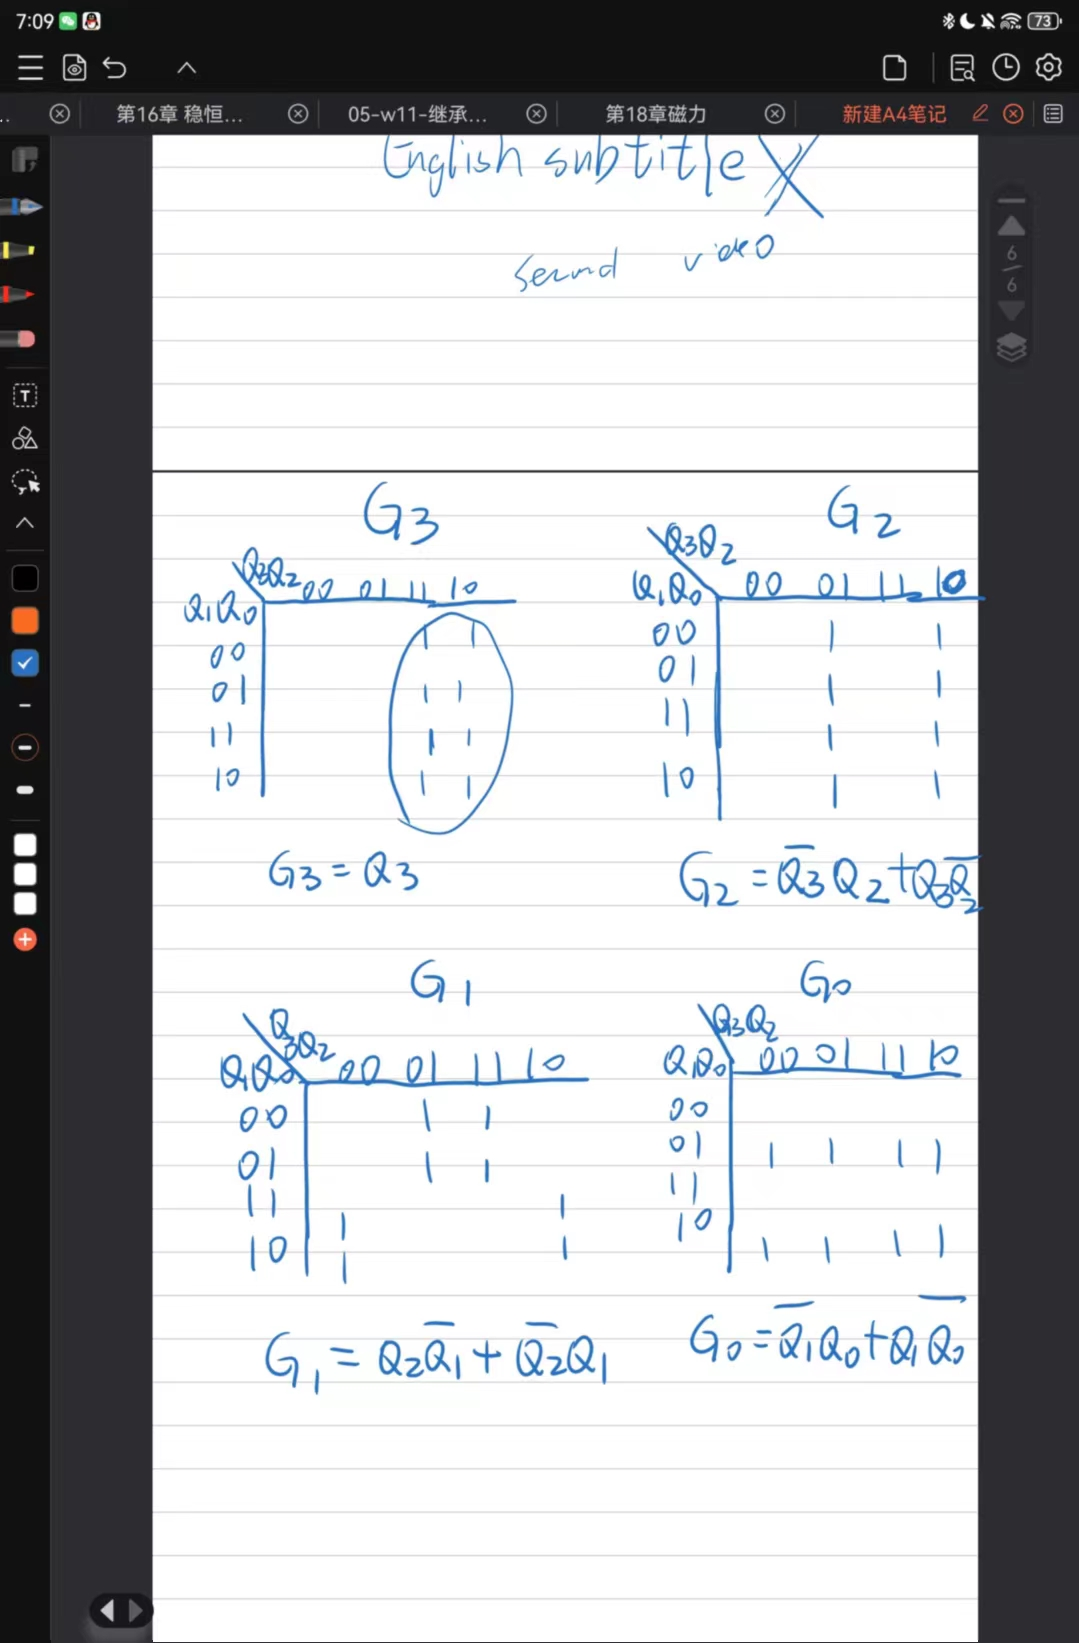 7:09
73
第16章 稳恒...
05-w11-继承...
第18章磁力
新建A4笔记
English subtitle X
second video
6
6
T
G3
Q3Q2 00 01 11 10
Q1Q0
00 1 1
01 1 1
11 1 1
10 1 1
G3 = Q3
G2
Q3Q2
Q1Q0 00 01 11 10
00 1 1
01 1 1
11 1 1
10 1 1
G2 = Q̅3Q2+Q3Q̅2
G1
Q3Q2
Q1Q0 00 01 11 10
00 1 1
01 1 1
11 1 1
10 1 1
G1 = Q2Q̅1+Q̅2Q1
G0
Q3Q2
Q1Q0 00 01 11 10
00
01 1 1 1 1
11
10 1 1 1 1
G0=Q̅1Q0+Q1Q̅0